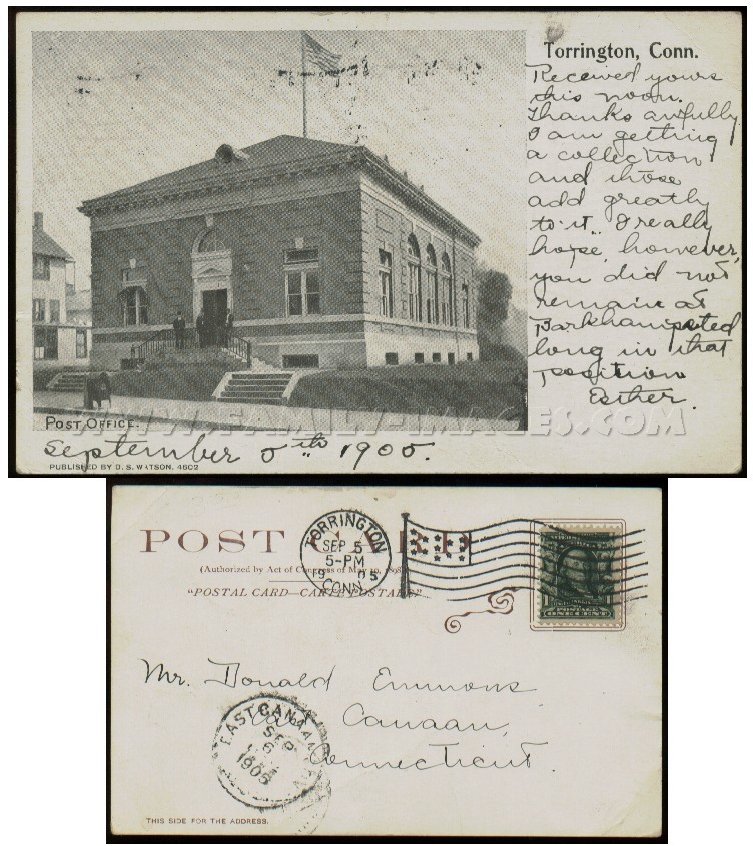 Torrington, Conn.
Received yours
this noon.
Thanks awfully.
I am getting
a collection
and those
add greatly
to it. I really
hope, however,
you did not
remain at
Barkhamsted
long in that
position
Esther.
POST OFFICE.
September 5th 1905.
PUBLISHED BY D. S. WATSON, 4602
WWW.FAMILY-IMAGES.COM
POST CARD
(Authorized by Act of Congress of May 19, 1898)
"POSTAL CARD—CARTE POSTALE"
TORRINGTON
SEP 5
5-PM
1905
CONN.
POSTAGE
ONE CENT
Mr. Donald Emmons
East Canaan,
Connecticut.
EAST CANAAN
SEP
6
1905
THIS SIDE FOR THE ADDRESS.